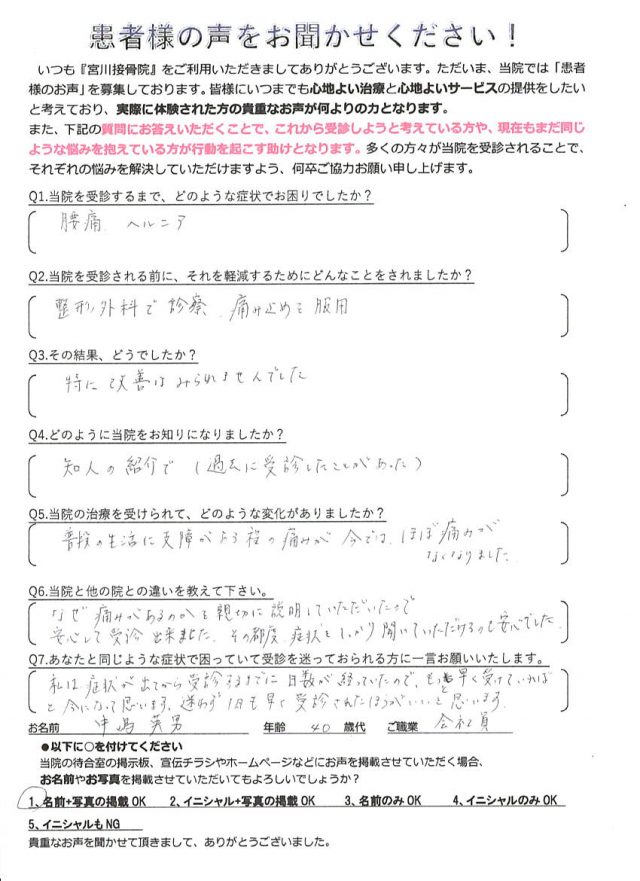 患者様の声をお聞かせください！
いつも『宮川接骨院』をご利用いただきましてありがとうございます。ただいま、当院では「患者
様のお声」を募集しております。皆様にいつまでも心地よい治療と心地よいサービスの提供をしたい
と考えており、実際に体験された方の貴重なお声が何よりの力となります。
また、下記の質問にお答えいただくことで、これから受診しようと考えている方や、現在もまだ同じ
ような悩みを抱えている方が行動を起こす助けとなります。多くの方々が当院を受診されることで、
それぞれの悩みを解決していただけますよう、何卒ご協力お願い申し上げます。
Q1.当院を受診するまで、どのような症状でお困りでしたか？
腰痛、ヘルニア
Q2.当院を受診される前に、それを軽減するためにどんなことをされましたか？
整形外科で診察、痛み止めを服用
Q3.その結果、どうでしたか？
特に改善はみられませんでした
Q4.どのように当院をお知りになりましたか？
知人の紹介で（過去に受診したことがあった）
Q5.当院の治療を受けられて、どのような変化がありましたか？
普段の生活に支障が出る程の痛みが今では、ほぼ痛みが
なくなりました。
Q6.当院と他の院との違いを教えて下さい。
なぜ痛みがあるのかを親切に説明していただいたので
安心して受診出来ました。その都度、症状をしっかり聞いていただけるのも安心でした。
Q7.あなたと同じような症状で困っていて受診を迷っておられる方に一言お願いいたします。
私は症状が出てから受診するまでに日数が経っていたので、もっと早く受けていれば
と今になって思います。迷わず1日も早く受診されたほうがいいと思います。
お名前 中島英男 年齢 40 歳代 ご職業 会社員
●以下に○を付けてください
当院の待合室の掲示板、宣伝チラシやホームページなどにお声を掲載させていただく場合、
お名前やお写真を掲載させていただいてもよろしいでしょうか？
1、名前+写真の掲載 OK 2、イニシャル+写真の掲載 OK 3、名前のみ OK 4、イニシャルのみ OK
5、イニシャルも NG
貴重なお声を聞かせて頂きまして、ありがとうございました。